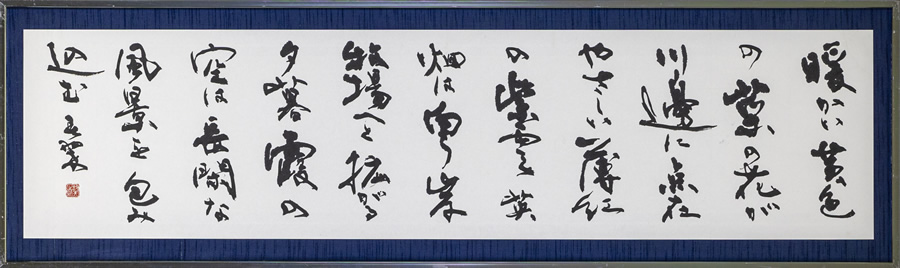 暖かい黄色
の菜の花が
川邊に点在
やさしい薄紅
の紫雲英
畑は向う岸
牧場へと拡がる
夕暮霞の
空は長閑な
風景を包み
込む